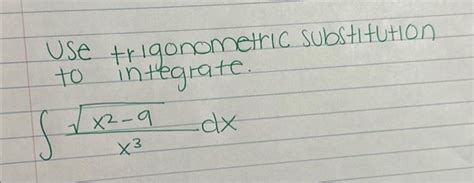 Use trigonometric substitution
to integrate.
∫ √(x²-9) / x³ dx